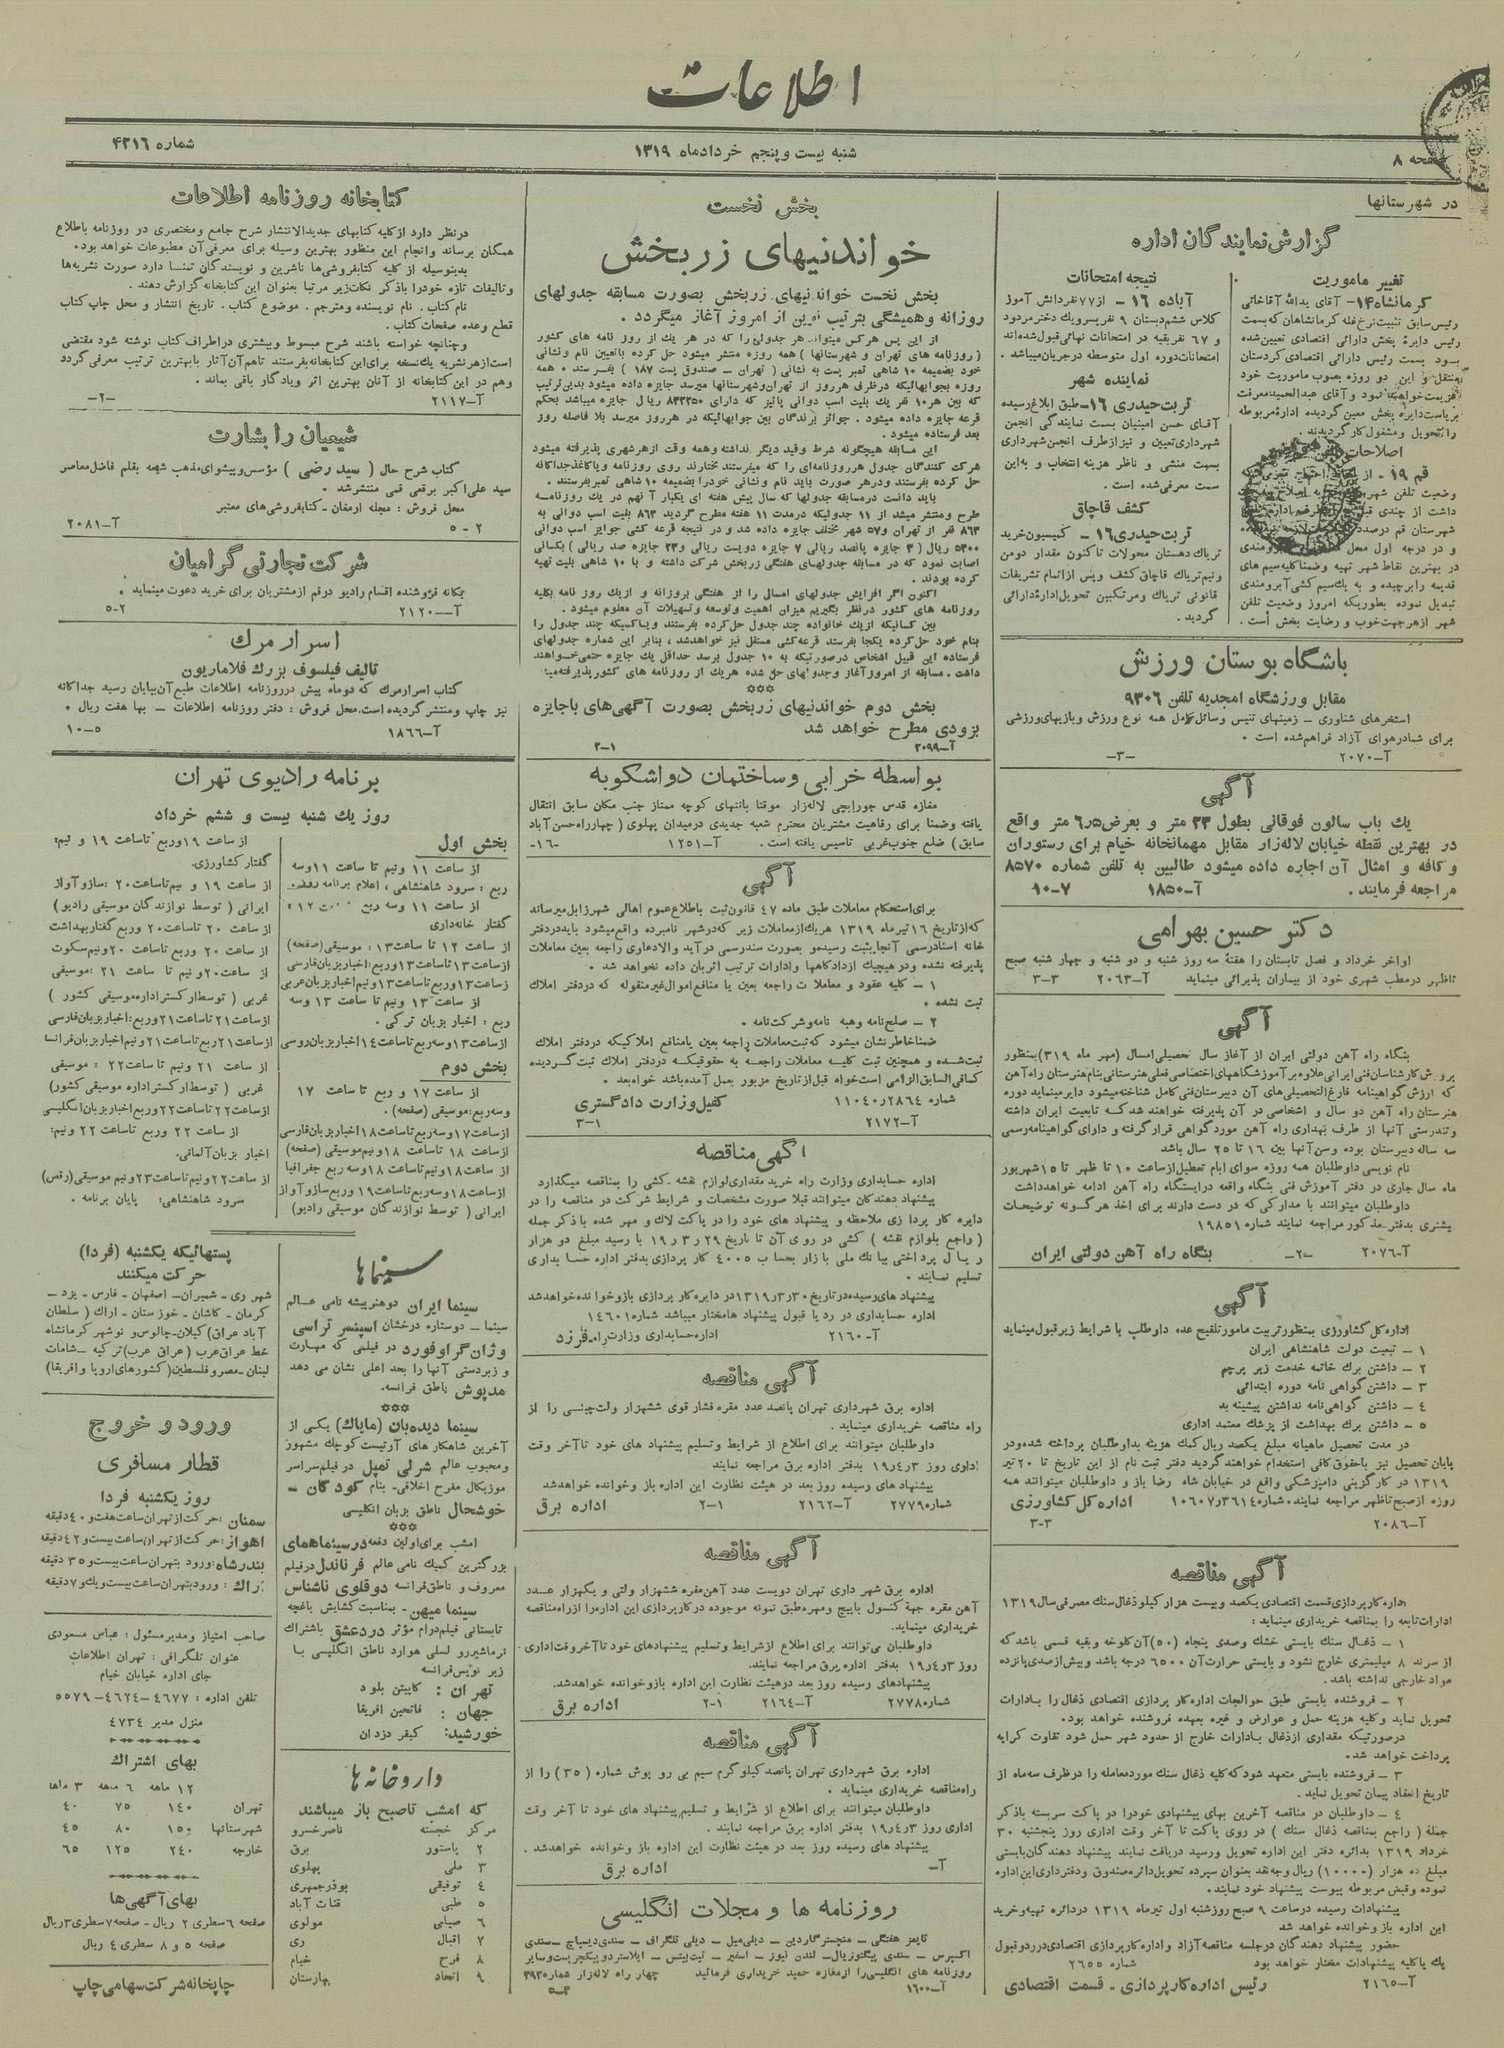 اطلاعات
صفحه ۸
شنبه بیست و پنجم خردادماه ۱۳۱۹
شماره ۴۲۱۶
در شهرستانها
گزارش نمایندگان اداره
تغییر ماموریت
کرمانشاه ۱۴- آقای یدالله آقاخانی
رئیس سابق تثبیت نرخ غله کرمانشاهان که بسمت
رئیس دایرهٔ بخش دارائی اقتصادی تعیین شده
بود بسمت رئیس دارائی اقتصادی کردستان
منتقل و این دو روزه بصوب ماموریت خود
عزیمت خواهند نمود و آقای عبدالحمید معرفت
بریاست دایره بخش معین گردیده ادارهٔ مربوطه
را تحویل و مشغول کار گردیدند.
اصلاحات تلفن
قم ۱۹- از
وضعیت تلفن شهر
داشت از چندی
شهرستان قم درصدد
و در درجه اول محل
در بهترین نقاط شهر تهیه و ضمنا کلیه سیم های
قدیمه را برچیده و به یک سیم کشی آبرومندی
تبدیل نموده بطوریکه امروز وضعیت تلفن
شهر از هرجهت خوب و رضایت بخش است.
نتیجه امتحانات
آباده ۱۶ - از ۷۷ نفر دانش آموز
کلاس ششم دبستان ۹ نفر پسر و یک دختر مردود
و ۶۷ نفر بقیه در امتحانات نهائی قبول شده اند
امتحانات دوره اول متوسطه درجریان میباشد.
نماینده شهر
تربت حیدری ۱۶- طبق ابلاغ رسیده
آقای حسن امینیان بسمت نمایندگی انجمن
شهرداری تعیین و نیز از طرف انجمن شهرداری
بسمت منشی و ناظر هزینه انتخاب و به این
سمت معرفی شده است.
کشف قاچاق
تربت حیدری ۱۶ - کمیسیون خرید
تریاک دهستان محولات تاکنون مقدار دو من
و نیم تریاک قاچاق کشف و پس از اتمام تشریفات
قانونی تریاک و مرتکبین تحویل ادارهٔ دارائی
گردید.
باشگاه بوستان ورزش
مقابل ورزشگاه امجدیه تلفن ۹۳۰۶
استخرهای شناوری - زمینهای تنیس وسائل کامل همه نوع ورزش و بازیهای ورزشی
برای شما در هوای آزاد فراهم شده است.
آ-۲۰۷۰ -۳-
آگهی
یک باب سالون فوقانی بطول ۲۳ متر و بعرض ۶٫۵ متر واقع
در بهترین نقطه خیابان لاله زار مقابل مهمانخانه خیام برای رستوران
و کافه و امثال آن اجاره داده میشود طالبین به تلفن شماره ۸۵۷۰
مراجعه فرمایند. آ-۱۸۵۰ ۷-۱۰
دکتر حسین بهرامی
اواخر خرداد و فصل تابستان را هفتهٔ سه روز شنبه و دو شنبه و چهار شنبه صبح
تا ظهر در مطب شهری خود از بیماران پذیرائی مینماید آ-۲۰۶۳ ۳-۳
آگهی
بنگاه راه آهن دولتی ایران از آغاز سال تحصیلی امسال (مهر ماه ۳۱۹) بمنظور
پرورش کارشناسان فنی ایرانی علاوه بر آموزشگاههای اختصاصی فعلی هنرستانی بنام هنرستان راه آهن
که ارزش گواهینامه فارغ التحصیلی های آن دبیرستان فنی کامل شناخته میشود دایر مینماید دوره
هنرستان راه آهن دو سال و اشخاصی در آن پذیرفته خواهند شد که تابعیت ایران داشته
و تندرستی آنها از طرف بهداری راه آهن مورد گواهی قرار گرفته و دارای گواهینامه رسمی
سه ساله دبیرستان بوده و سن آنها بین ۱۶ تا ۲۵ سال باشد
نام نویسی داوطلبان همه روزه سوای ایام تعطیل از ساعت ۱۰ تا ظهر تا ۱۵ شهریور
ماه سال جاری در دفتر آموزش فنی بنگاه واقعه در ایستگاه راه آهن ادامه خواهد داشت
داوطلبان میتوانند با مدارکی که در دست دارند برای اخذ هر گونه توضیحات
بیشتری بدفتر مذکور مراجعه نمایند شماره ۱۹۸۵۱
آ-۲۰۷۶ -۲- بنگاه راه آهن دولتی ایران
آگهی
اداره کل کشاورزی بمنظور تربیت مامور تلقیح عده داوطلب با شرایط زیر قبول مینماید
۱ - تبعیت دولت شاهنشاهی ایران
۲ - داشتن برک خاتمه خدمت زیر پرچم
۳ - داشتن گواهی نامه دوره ابتدائی
۴ - داشتن گواهی نامه نداشتن پیشینه بد
۵ - داشتن برک بهداشت از پزشک معتمد اداری
در مدت تحصیل ماهیانه مبلغ یکصد ریال کمک هزینه بداوطلبان پرداخته شده و در
پایان تحصیل نیز با حقوق کافی استخدام خواهند گردید دفتر ثبت نام از این تاریخ تا ۲۰ تیر
۱۳۱۹ در کارگزینی دامپزشکی واقع در خیابان شاه رضا باز و داوطلبان میتوانند همه
روزه از صبح تا ظهر مراجعه نمایند. شماره ۱۰۶۰۷٫۳۶۱۴ اداره کل کشاورزی
آ-۲۰۸۶ ۳-۳
آگهی مناقصه
اداره کارپردازی قسمت اقتصادی یکصد و بیست هزار کیلو ذغال سنک مصرفی سال ۱۳۱۹
ادارات تابعه را بمناقصه خریداری مینماید:
۱ - ذغال سنک بایستی خشک و صدی پنجاه (۵۰) آن کلوخه و بقیه قسمی باشد که
از سرند ۸ میلیمتری خارج نشود و بایستی حرارت آن ۶۵۰۰ درجه باشد و بیش از صدی پانزده
مواد خارجی نداشته باشد.
۲ - فروشنده بایستی طبق حوالجات اداره کار پردازی اقتصادی ذغال را بادارات
تحویل نماید و کلیه هزینه حمل و عوارض و غیره بعهده فروشنده خواهد بود.
درصورتیکه مقداری از ذغال بادارات خارج از حدود شهر حمل شود تفاوت کرایه
پرداخت خواهد شد.
۳ - فروشنده بایستی متعهد شود که کلیه ذغال سنک مورد معامله را در ظرف سه ماه از
تاریخ انعقاد پیمان تحویل نماید.
۴ - داوطلبان در مناقصه آخرین بهای پیشنهادی خود را در پاکت سربسته با ذکر
جملهٔ (راجع بمناقصه ذغال سنک) در روی پاکت تا آخر وقت اداری روز پنجشنبه ۳۰
خرداد ۱۳۱۹ بدائره دفتر این اداره تحویل و رسید دریافت نمایند پیشنهاد دهندگان بایستی
مبلغ ده هزار (۱۰۰۰۰) ریال وجه نقد بعنوان سپرده تحویل دائره صندوق و دفترداری این اداره
نموده و قبض مربوطه بپیوست پیشنهاد خود نمایند.
پیشنهادات رسیده در ساعت ۹ صبح روز شنبه اول تیرماه ۱۳۱۹ در دائره تهیه و خرید
این اداره باز و خوانده خواهد شد
حضور پیشنهاد دهندگان در جلسه مناقصه آزاد و اداره کارپردازی اقتصادی در رد و قبول
یک یا کلیه پیشنهادات مختار خواهد بود شماره ۲۶۵۵
آ-۲۱۶۵ رئیس اداره کارپردازی - قسمت اقتصادی
بخش نخست
خواندنیهای زربخش
بخش نخست خواندنیهای زربخش بصورت مسابقه جدولهای
روزانه و همیشگی بترتیب نوین از امروز آغاز میگردد.
از این پس هرکس میتواند هر جدولی را که در هر یک از روز نامه های کشور
(روزنامه های تهران و شهرستانها) همه روزه منتشر میشود حل کرده با تعیین نام و نشانی
خود بضمیمه ۱۰ شاهی تمبر پست به نشانی (تهران - صندوق پست ۱۸۷) بفرستد. همه
روزه بجوابهائیکه در ظرف هر روز از تهران و شهرستانها میرسد جایزه داده میشود بدین ترتیب
که بین هر ۱۰ نفر یک بلیت اسب دوانی پائیز که دارای ۸۲۲۲۵۰ ریال جایزه میباشد بحکم
قرعه جایزه داده میشود. جوائز برندگان بین جوابهائیکه در هر روز میرسد بلا فاصله روز
بعد فرستاده میشود.
این مسابقه هیچگونه شرط و قید دیگر نداشته و همه وقت از هر شهری پذیرفته میشود
شرکت کنندگان جدول هر روزنامه ای را که میفرستند مختارند روی روزنامه و یا کاغذ جداگانه
حل کرده بفرستند و در هر صورت باید نام و نشانی خود را بضمیمه ۱۰ شاهی تمبر بفرستند.
باید دانست در مسابقه جدولها که سال پیش هفته ای یکبار آنهم در یک روزنامه
طرح و منتشر میشد از ۱۱ جدولیکه در مدت ۱۱ هفته مطرح گردید ۸۶۳ بلیت اسب دوانی به
۸۶۳ نفر از تهران و ۵۷ شهر مختلف جایزه داده شد و در نتیجه قرعه کشی جوایز اسب دوانی
۵۲۰۰ ریال (۳ جایزه پانصد ریالی ۷ جایزه دویست ریالی و ۲۳ جایزه صد ریالی) بکسانی
اصابت نمود که در مسابقه جدولهای هفتگی زربخش شرکت داشته و با ۱۰ شاهی بلیت تهیه
کرده بودند.
اکنون اگر افزایش جدولهای امسال را از هفتگی بروزانه و از یک روز نامه بکلیه
روزنامه های کشور در نظر بگیریم میزان اهمیت و توسعه و تسهیلات آن معلوم میشود.
بین کسانیکه از یک خانواده چند جدول حل کرده بفرستند و یا کسیکه چند جدول را
بنام خود حل کرده یکجا بفرستد قرعه کشی مستقل نیز خواهد شد، بنابر این شماره جدولهای
فرستاده این قبیل اشخاص در صورتیکه به ۱۰ جدول برسد حداقل یک جایزه حتمی خواهند
داشت. مسابقه از امروز آغاز و جدولهای حل شده هریک از روزنامه های کشور پذیرفته
بخش دوم خواندنیهای زربخش بصورت آگهی های با جایزه
بزودی مطرح خواهد شد
آ-۲۰۹۹ ۱-۲
بواسطه خرابی و ساختمان دو اشکوبه
مغازه قدس جورابچی لاله زار موقتا بانتهای کوچه ممتاز جنب مکان سابق انتقال
یافته و ضمنا برای رفاهیت مشتریان محترم شعبه جدیدی در میدان پهلوی (چهارراه حسن آباد
سابق) ضلع جنوب غربی تاسیس یافته است. آ-۱۲۵۱ -۱۶-
آگهی
برای استحکام معاملات طبق ماده ۴۷ قانون ثبت باطلاع عموم اهالی شهر زابل میرساند
که از تاریخ ۱۶ تیر ماه ۱۳۱۹ هریک از معاملات زیر که در شهر نامبرده واقع میشود باید در دفتر
خانه اسناد رسمی آنجا بثبت رسیده و بصورت سند رسمی در آید والا دعاوی راجعه بعین معاملات
پذیرفته نشده و در هیچیک از دادگاهها و ادارات ترتیب اثر بان داده نخواهد شد.
۱ - کلیه عقود و معاملات راجعه بعین یا منافع اموال غیر منقوله که در دفتر املاک
ثبت نشده.
۲ - صلح نامه و هبه نامه و شرکت نامه.
ضمنا خاطر نشان میشود که ثبت معاملات راجعه بعین یا منافع املاکیکه در دفتر املاک
ثبت شده و همچنین ثبت کلیه معاملات راجعه به حقوقیکه در دفتر املاک ثبت گردیده
کمافی السابق الزامی است خواه قبل از تاریخ مزبور بعمل آمده باشد خواه بعد.
شماره ۱۱۰۴۰٫۲۸۶۴ کفیل وزارت دادگستری
آ-۲۱۷۲ ۱-۳
آگهی مناقصه
اداره حسابداری وزارت راه خرید مقداری لوازم نقشه کشی را بمناقصه میگذارد
پیشنهاد دهندگان میتوانند قبلا صورت مشخصات و شرایط شرکت در مناقصه را در
دایره کار پردازی ملاحظه و پیشنهاد های خود را در پاکت لاک و مهر شده با ذکر جمله
(راجع بلوازم نقشه) کشی در روی آن تا تاریخ ۲۹ر۳ر۱۹ با رسید مبلغ دو هزار
ریال پرداختی ببانک ملی بازار بحساب ۴۰۰۵ کار پردازی بدفتر اداره حسابداری
تسلیم نمایند.
پیشنهاد های رسیده در تاریخ ۳۰ر۳ر۱۳۱۹ در دایره کار پردازی باز و خوانده خواهد شد
اداره حسابداری در رد یا قبول پیشنهاد ها مختار میباشد شماره ۱۴۶۰۱
آ-۲۱۶۰ اداره حسابداری وزارت راه - فرزد
آگهی مناقصه
اداره برق شهرداری تهران پانصد عدد مقره فشار قوی ششهزار ولت چینی را از
راه مناقصه خریداری مینماید.
داوطلبان میتوانند برای اطلاع از شرایط و تسلیم پیشنهاد های خود تا آخر وقت
اداری روز ۳ر۴ر۱۹ بدفتر اداره برق مراجعه نمایند
پیشنهاد های رسیده روز بعد در هیئت نظارت این اداره باز و خوانده خواهد شد
شماره ۲۷۷۹ آ-۲۱۶۲ ۱-۲ اداره برق
آگهی مناقصه
اداره برق شهر داری تهران دویست عدد آهن مقره ششهزار ولتی و یکهزار عدد
آهن مقره جهة کنسول با پیچ و مهره طبق نمونه موجوده در کارپردازی این اداره را از راه مناقصه
خریداری مینماید.
داوطلبان می توانند برای اطلاع از شرایط و تسلیم پیشنهادهای خود تا آخر وقت اداری
روز ۳ر۴ر۱۹ بدفتر اداره برق مراجعه نمایند.
پیشنهادهای رسیده روز بعد در هیئت نظارت این اداره باز و خوانده خواهد شد.
شماره ۲۷۷۸ آ-۲۱۶۴ ۱-۲ اداره برق
آگهی مناقصه
اداره برق شهرداری تهران پانصد کیلو گرم سیم بی رو پوش شماره (۳۵) را از
راه مناقصه خریداری مینماید.
داوطلبان میتوانند برای اطلاع از شرایط و تسلیم پیشنهاد های خود تا آخر وقت
اداری روز ۳ر۴ر۱۹ بدفتر اداره برق مراجعه نمایند.
پیشنهاد های رسیده روز بعد در هیئت نظارت این اداره باز و خوانده خواهد شد.
آ- اداره برق
روزنامه ها و مجلات انگلیسی
تایمز هفتگی - منچستر گاردین - دیلی میل - دیلی تلگراف - سندی دیسپاچ - سندی
اکسپرس - سندی پیکتوریال - لندن نیوز - اسفیر - تیت بیتس - ایلاستردویکلی پست و سایر
روزنامه های انگلیسی را از مغازه حمید خریداری فرمائید چهار راه لاله زار شماره ۳۹۲
آ-۱۶۰۰ ۳-۵
کتابخانه روزنامه اطلاعات
در نظر دارد از کلیه کتابهای جدیدالانتشار شرح جامع و مختصری در روزنامه باطلاع
همگان برساند و انجام این منظور بهترین وسیله برای معرفی آن مطبوعات خواهد بود.
بدینوسیله از کلیه کتابفروشی ها ناشرین و نویسندگان تمنا دارد صورت نشریه ها
و تالیفات تازه خود را با ذکر نکات زیر مرتبا بعنوان این کتابخانه گزارش دهند.
نام کتاب. نام نویسنده و مترجم. موضوع کتاب. تاریخ انتشار و محل چاپ کتاب
قطع و عده صفحات کتاب.
و چنانچه خواسته باشند شرح مبسوط و بیشتری در اطراف کتاب نوشته شود مقتضی
است از هر نشریه یک نسخه برای این کتابخانه بفرستند تا هم آن آثار با بهترین ترتیب معرفی گردد
و هم در این کتابخانه از آنان بهترین اثر و یادگار باقی بماند.
آ-۲۱۱۷ -۲-
شیعیان را بشارت
کتاب شرح حال (سید رضی) مؤسس و پیشوای مذهب شیعه بقلم فاضل معاصر
سید علی اکبر برقعی قمی منتشر شد.
محل فروش: مجله ارمغان - کتابفروشی های معتبر
۲-۵ آ-۲۰۸۱
شرکت تجارتی گرامیان
یگانه فروشنده اقسام رادیو در قم از مشتریان برای خرید دعوت مینماید.
آ-۲۱۲۰ ۲-۵
اسرار مرک
تالیف فیلسوف بزرک فلاماریون
کتاب اسرار مرک که دو ماه پیش در روزنامه اطلاعات طبع آن بپایان رسید جداگانه
نیز چاپ و منتشر گردیده است. محل فروش: دفتر روزنامه اطلاعات - بها هفت ریال.
آ-۱۸۶۶ ۵-۱۰
برنامه رادیوی تهران
روز یک شنبه بیست و ششم خرداد
بخش اول
از ساعت ۱۱ ونیم تا ساعت ۱۱ و سه
ربع: سرود شاهنشاهی، اعلام برنامه
از ساعت ۱۱ وسه ربع ۱۲:
گفتار خانه داری
از ساعت ۱۲ تا ساعت ۱۳: موسیقی (صفحه)
از ساعت ۱۳ تا ساعت ۱۳ و ربع: اخبار بزبان فارسی
از ساعت ۱۳ و ربع تا ساعت ۱۳ و نیم اخبار بزبان عربی
از ساعت ۱۳ و نیم تا ساعت ۱۳ وسه
ربع: اخبار بزبان ترکی.
از ساعت ۱۳ وسه ربع تا ساعت ۱۴ اخبار بزبان روسی
بخش دوم
از ساعت ۱۷ و ربع تا ساعت ۱۷
وسه ربع: موسیقی (صفحه).
از ساعت ۱۷ وسه ربع تا ساعت ۱۸ اخبار بزبان فارسی
از ساعت ۱۸ تا ساعت ۱۸ و نیم موسیقی (صفحه)
از ساعت ۱۸ و نیم تا ساعت ۱۸ وسه ربع جغرافیا
از ساعت ۱۸ وسه ربع تا ساعت ۱۹ و ربع ساز و آواز
ایرانی (توسط نوازندگان موسیقی رادیو)
از ساعت ۱۹ و ربع تا ساعت ۱۹ و نیم:
گفتار کشاورزی.
از ساعت ۱۹ و نیم تا ساعت ۲۰: ساز و آواز
ایرانی (توسط نوازندگان موسیقی رادیو)
از ساعت ۲۰ تا ساعت ۲۰ و ربع گفتار بهداشت
از ساعت ۲۰ وربع تا ساعت ۲۰ و نیم سکوت
از ساعت ۲۰ و نیم تا ساعت ۲۱: موسیقی
غربی (توسط ارکستر اداره موسیقی کشور)
از ساعت ۲۱ تا ساعت ۲۱ و ربع: اخبار بزبان فارسی
از ساعت ۲۱ و ربع تا ساعت ۲۱ و نیم اخبار بزبان فرانسه
از ساعت ۲۱ ونیم تا ساعت ۲۲: موسیقی
غربی (توسط ارکستر اداره موسیقی کشور)
از ساعت ۲۲ تا ساعت ۲۲ و ربع اخبار بزبان انگلیسی
از ساعت ۲۲ وربع تا ساعت ۲۲ ونیم:
اخبار بزبان آلمانی.
از ساعت ۲۲ و نیم تا ساعت ۲۳ و نیم موسیقی (رقص)
سرود شاهنشاهی: پایان برنامه.
سینماها
سینما ایران دو هنرپیشه نامی عالم
سینما - دو ستاره درخشان اسپنسر تراسی
و ژان گراوفورد در فیلمی که مهارت
و زبردستی آنها را بحد اعلی نشان می دهد
مدپوش ناطق فرانسه.
سینما دیده بان (مایاک) یکی از
آخرین شاهکار های آرتیست کوچک مشهور
و محبوب عالم شرلی تمپل در فیلم سراسر
موزیکال مفرح اخلاقی - بنام کودکان -
خوشحال ناطق بزبان انگلیسی
امشب برای اولین دفعه در سینماهمای
بزرگترین کمیک نامی عالم فرناندل در فیلم
معروف و ناطق فرانسه دوقلوی ناشناس
سینما میهن - بمناسبت گشایش باغچه
تابستانی فیلم درام مؤثر درد عشق باشتراک
نرماشیرر و لسلی هوارد ناطق انگلیسی با
زیر نویس فرانسه
تهران: کاپیتن بلود
جهان: فاتحین افریقا
خورشید: کیفر دزدان
داروخانه ها
که امشب تا صبح باز میباشند
مرکز خجسته ناصرخسرو
۲ پاستور برق
۳ ملی پهلوی
۴ توفیقی بوذرجمهری
۵ طبی قنات آباد
۶ ضیائی مولوی
۷ اقبال ری
۸ فرح خیام
۹ اتحاد بهارستان
پستهائیکه یکشنبه (فردا)
حرکت میکنند
شهر ری - شمیران - اصفهان - فارس - یزد -
کرمان - کاشان - خوزستان - اراک (سلطان
آباد عراق) گیلان - چالوس و نوشهر کرمانشاه
خط عراق عرب (عراق عرب) ترکیه - شامات
لبنان - مصر و فلسطین (کشورهای اروپا و افریقا)
ورود و خروج
قطار مسافری
روز یکشنبه فردا
سمنان: حرکت از تهران ساعت هفت و ۴۰ دقیقه
اهواز: حرکت از تهران ساعت بیست و ۴۲ دقیقه
بندرشاه: ورود بتهران ساعت بیست و ۳۵ دقیقه
اراک: ورود بتهران ساعت بیست و یک و ۷ دقیقه
صاحب امتیاز و مدیر مسئول: عباس مسعودی
عنوان تلگرافی: تهران اطلاعات
جای اداره خیابان خیام
تلفن اداره: ۴۶۷۷-۴۶۲۴-۵۵۷۹
منزل مدیر ۴۷۳۴
بهای اشتراک
۱۲ ماهه ۶ ماهه ۳ ماهه
تهران ۱۴۰ ۷۵ ۴۰
شهرستانها ۱۵۰ ۸۰ ۴۵
خارجه ۲۴۰ ۱۲۵ ۶۵
بهای آگهی ها
صفحه ۶ سطری ۲ ریال - صفحه ۷ سطری ۳ ریال
صفحه ۵ و ۸ سطری ۴ ریال
چاپخانه شرکت سهامی چاپ